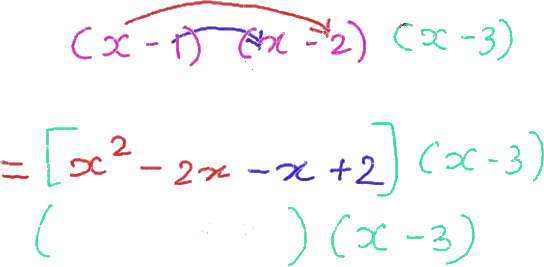 (x - 1) (x - 2) (x - 3)
= [x² - 2x - x + 2] (x - 3)
( ) (x - 3)